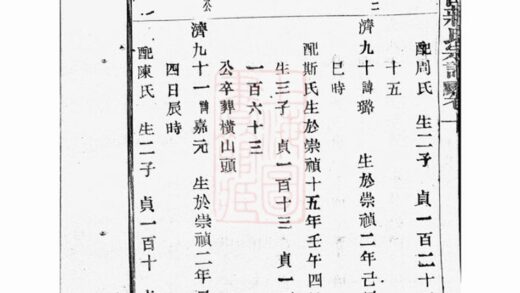 氏宗譜
配周氏 生二子 貞一百二十
十五
濟九十諱璐 生於崇禎二年己
巳時
配斯氏生於崇禎十五年壬午四
生三子 貞一百十三 貞一
一百六十三
公卒葬橫山頭
濟九十一諱嘉元 生於崇禎二年
四日辰時
配陳氏 生二子 貞一百十